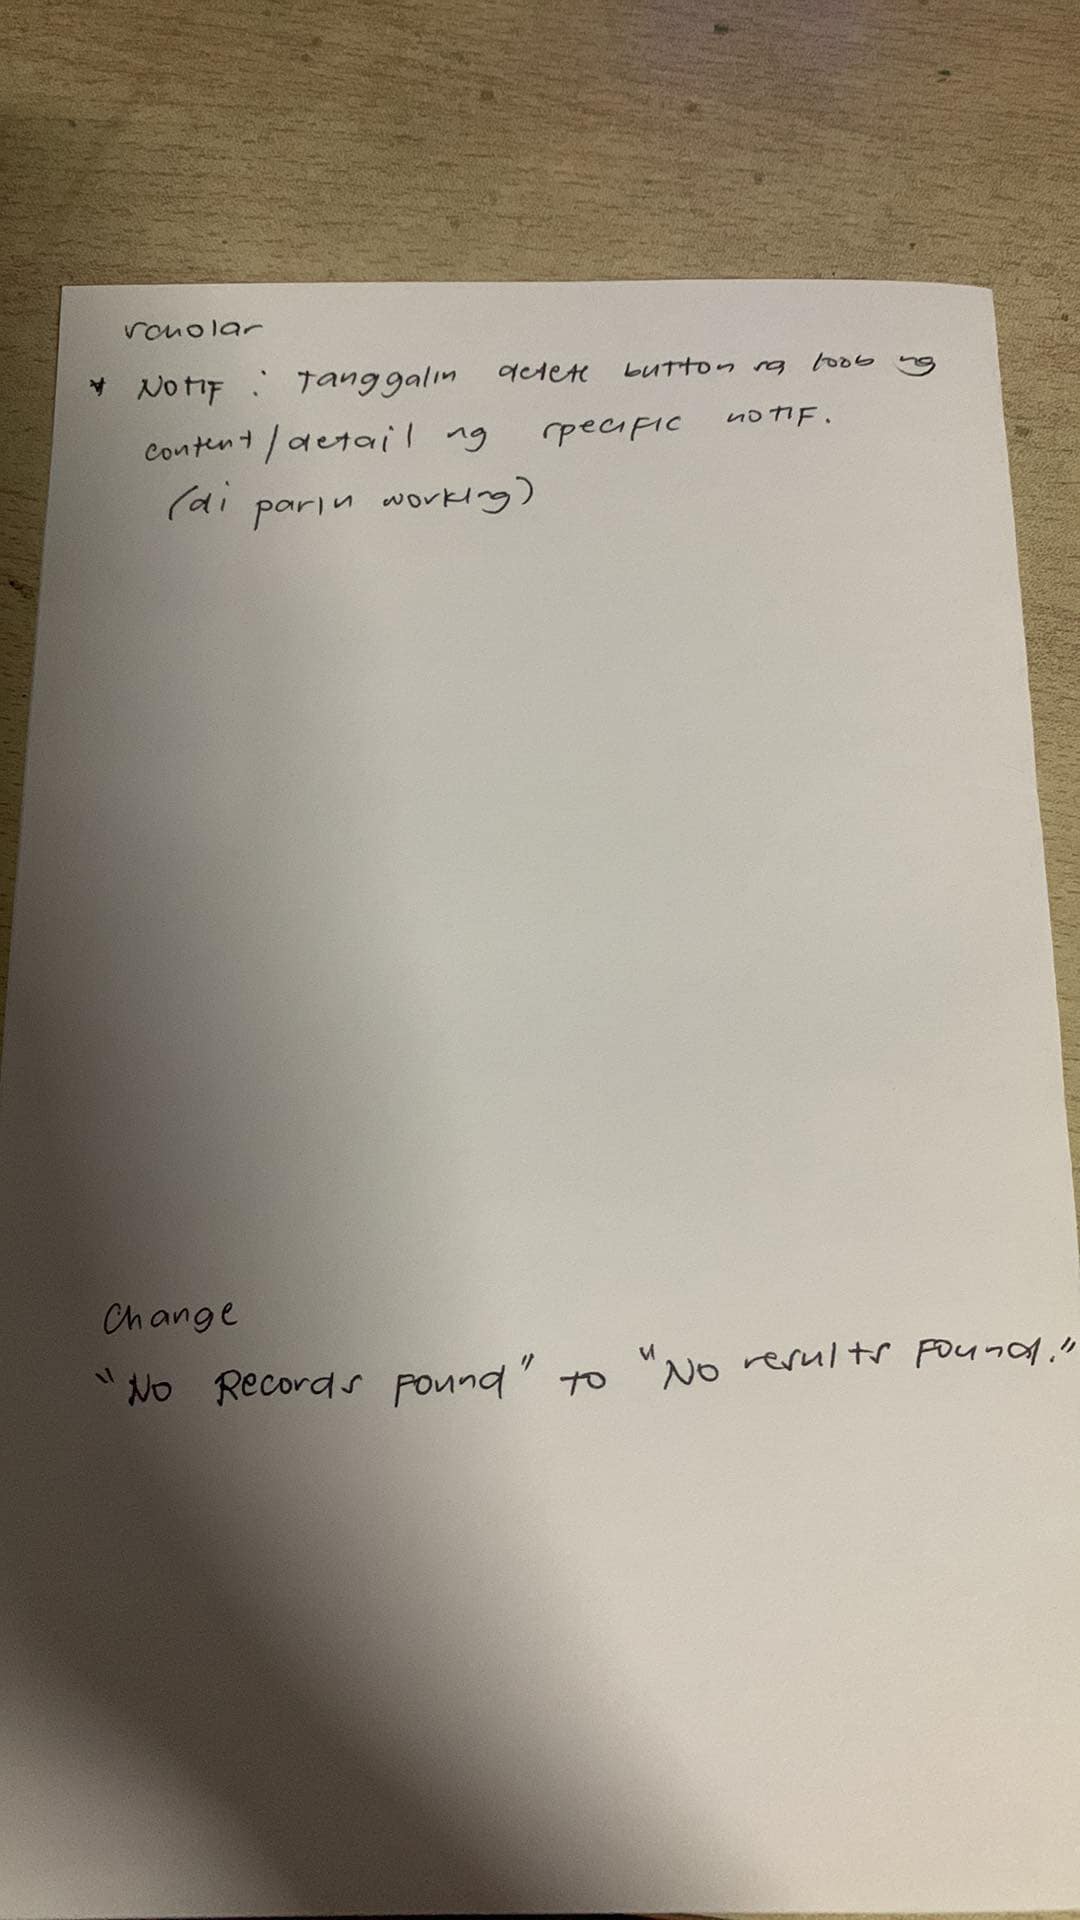 scholar
* NOTIF : Tanggalin delete button sa loob ng
content/detail ng specific notif.
(di parin working)
Change
"No Records Found" to "No results Found."